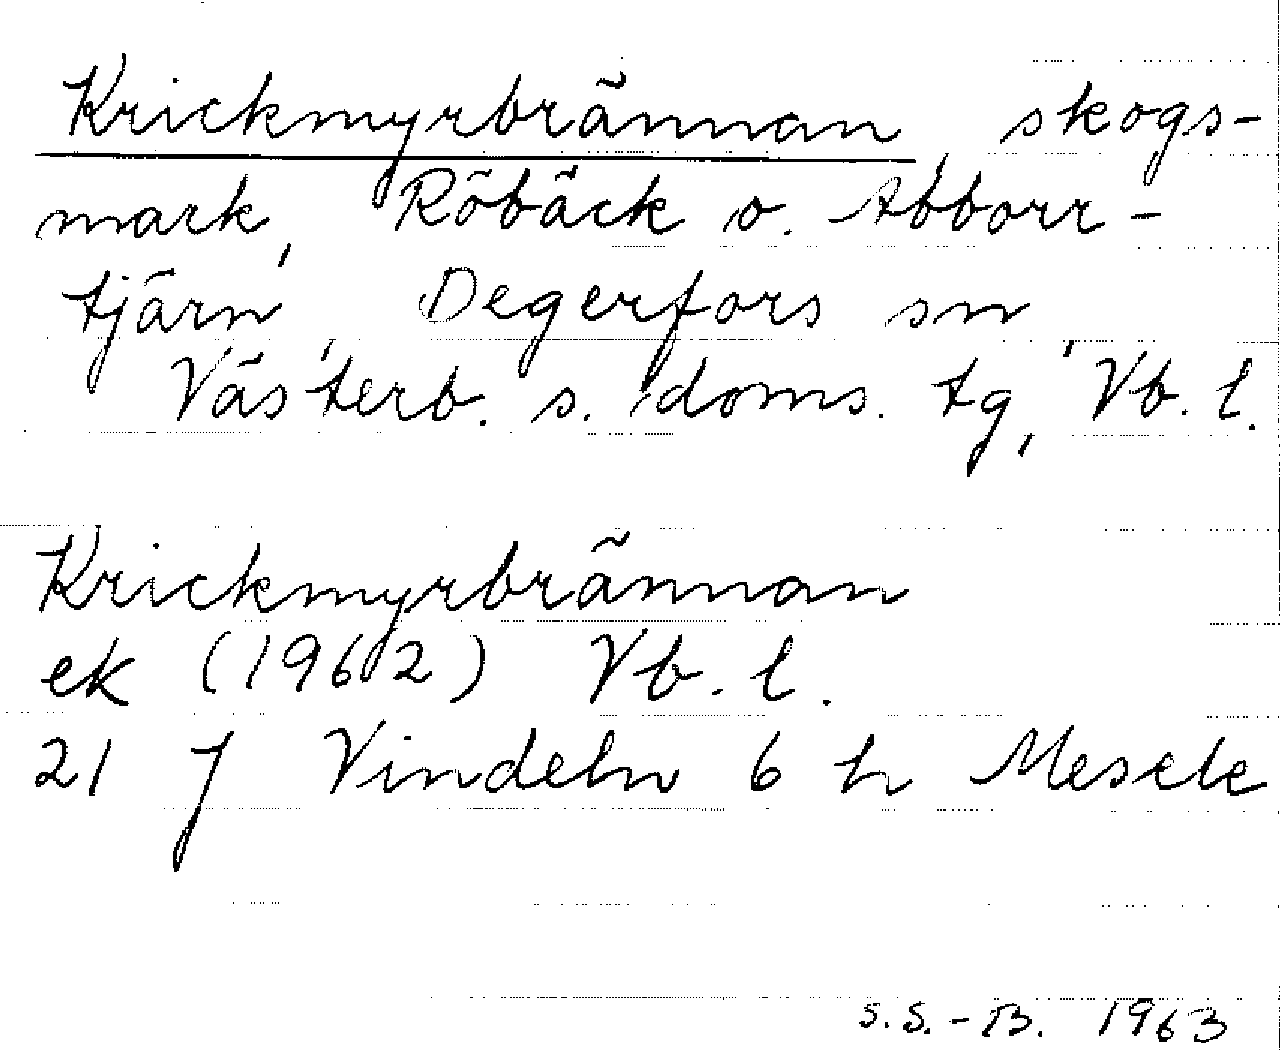 Krickmyrbrännan, skogs-
mark, Röbäck o. Abborr-
tjärn, Degerfors sn,
Västerb. s. doms. tg, Vb. l.
Krickmyrbrännan
ek (1962) Vb. l.
21 J Vindeln 6 h Mesele
S.S.-B. 1963